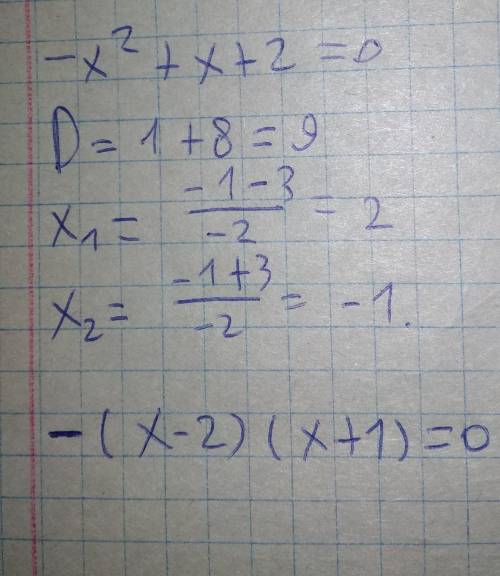 -x² + x + 2 = 0
D = 1 + 8 = 9
x₁ = (-1-3)/(-2) = 2
x₂ = (-1+3)/(-2) = -1.
-(x-2)(x+1)=0